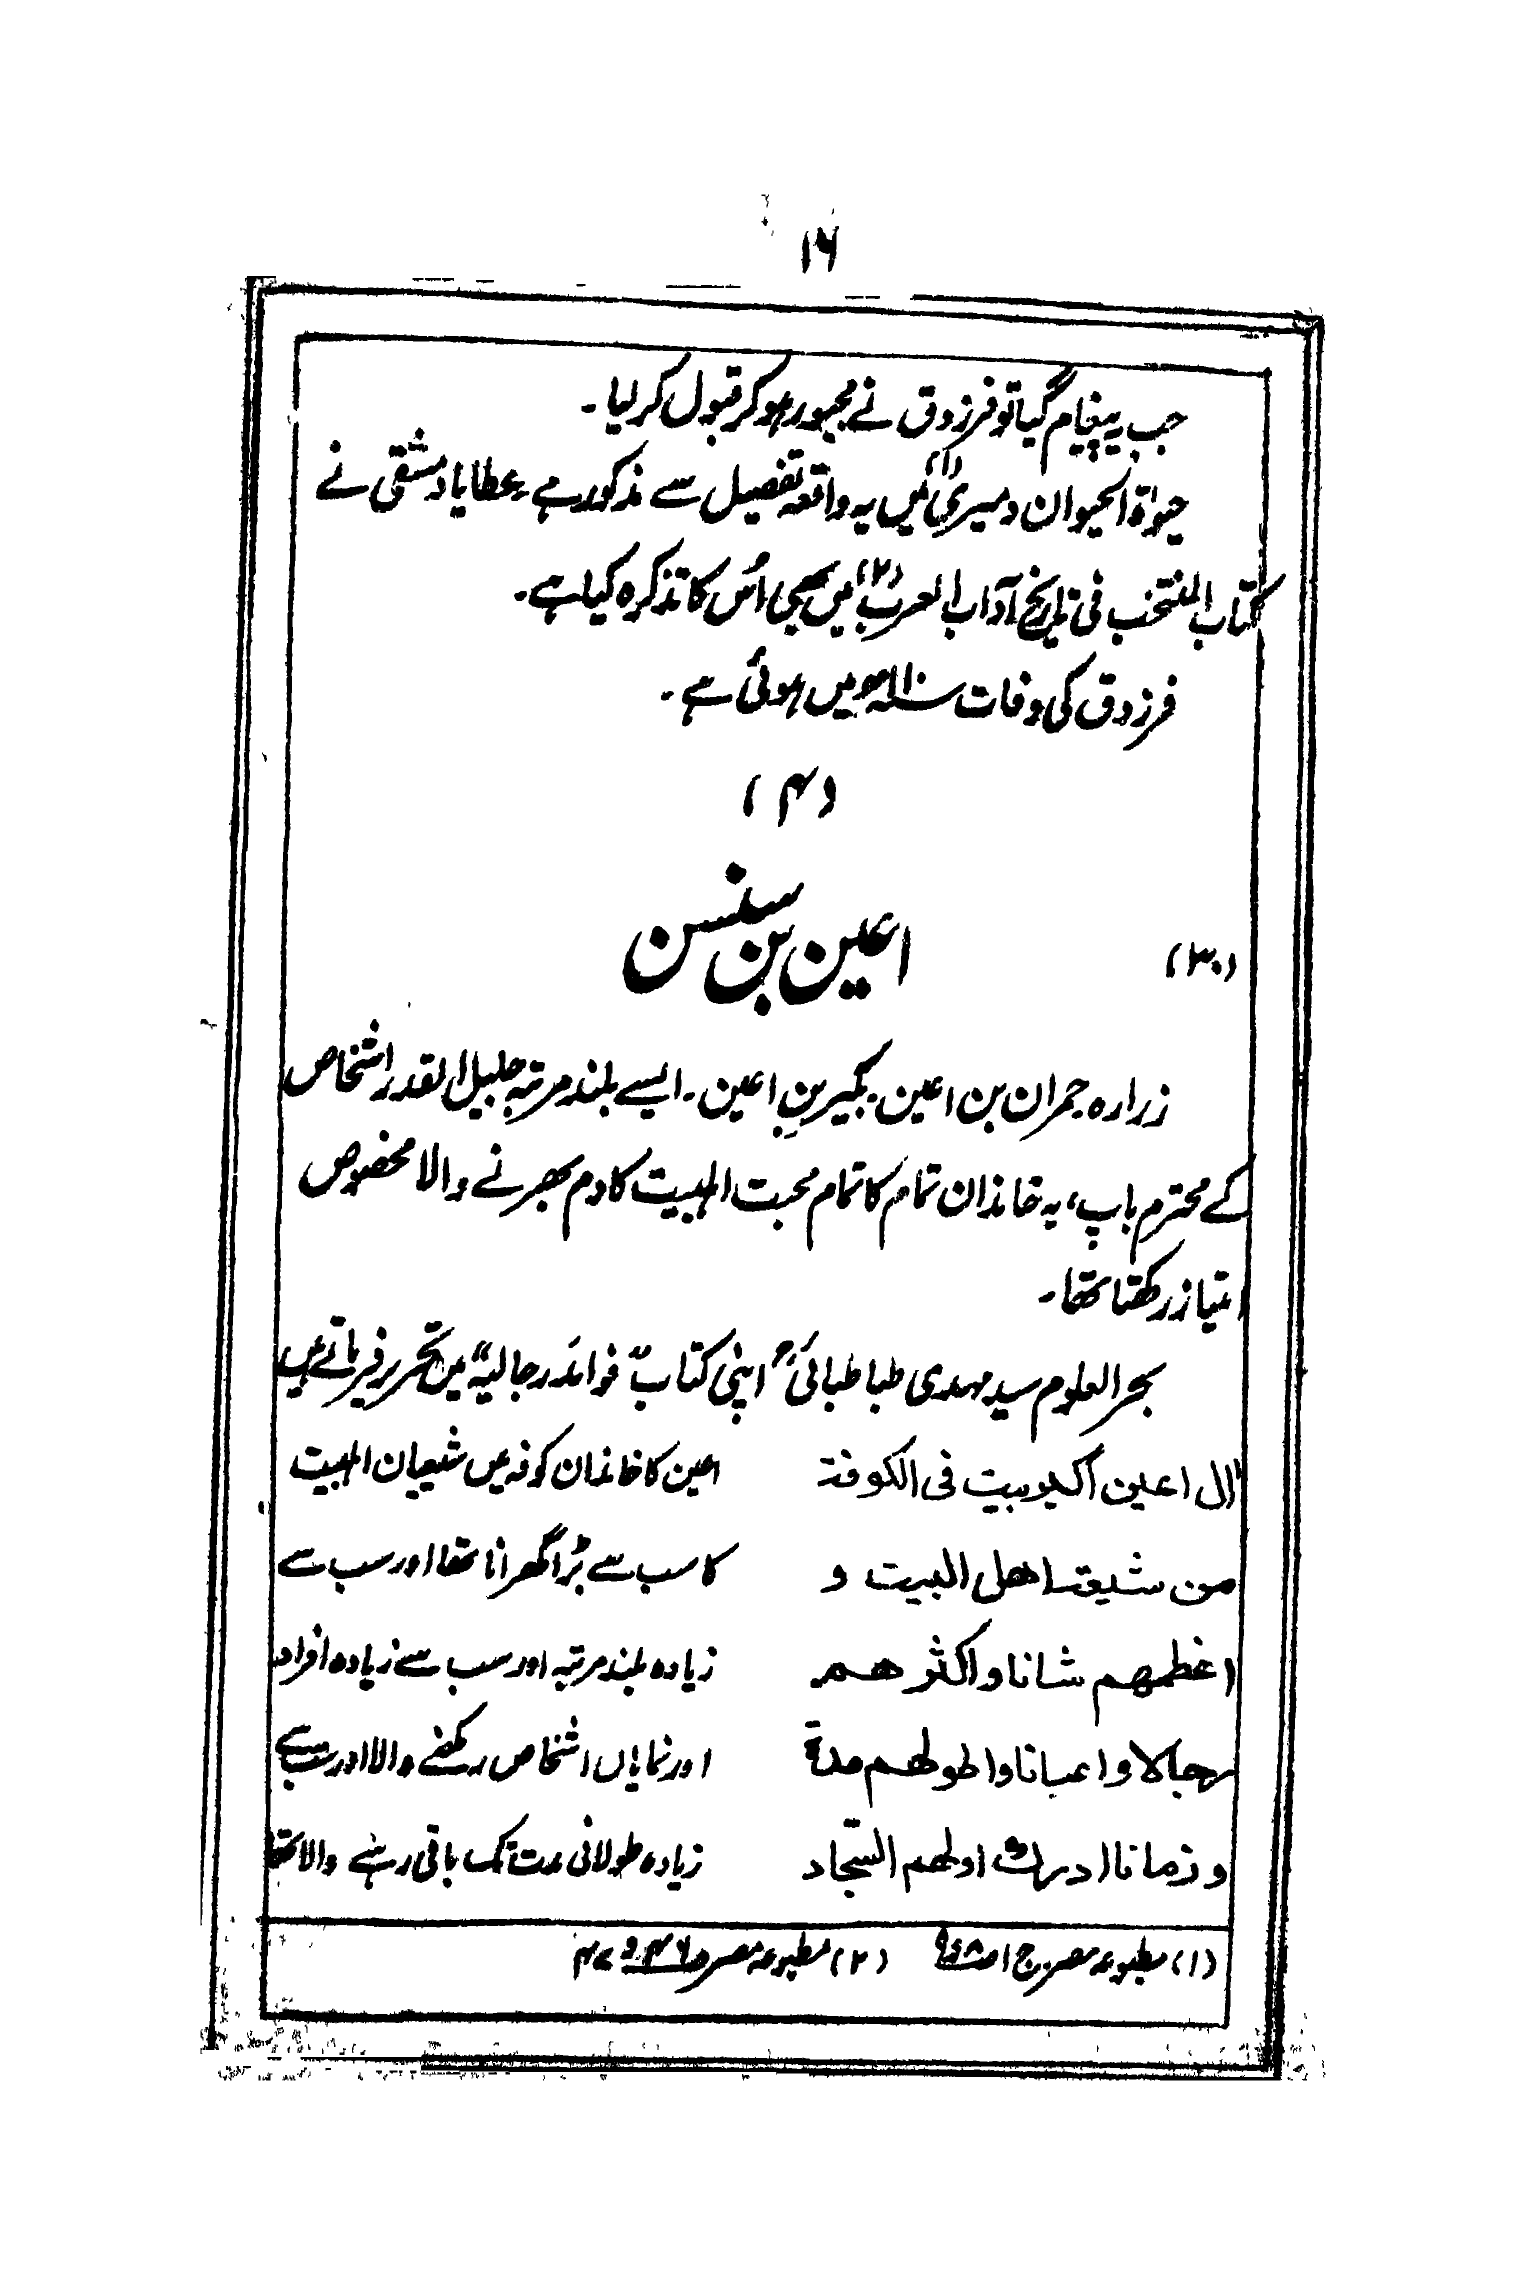 ۱۶
جب یہ پیغام گیا تو فرزدق نے مجبور ہو کر قبول کر لیا۔
حیوٰۃ الحیوان دمیری(۱) میں یہ واقعہ تفصیل سے مذکور ہے۔ عطایا دمشقی نے
کتاب المنتخب فی تاریخ آداب العرب(۲) میں بھی اُس کا تذکرہ کیا ہے۔
فرزدق کی وفات سنہ ۱۱۰ھ میں ہوئی ہے۔
(۴)
اعین بن سنسن
(۳۰)
زرارہ حمران بن اعین۔ بکیر بن اعین۔ ایسے بلند مرتبہ جلیل القدر اشخاص
کے محترم باپ، یہ خاندان تمام کا تمام محبت اہلبیت کا دم بھرنے والا مخصوص
امتیاز رکھتا تھا۔
بحر العلوم سید مہدی طباطبائیؒ اپنی کتاب "فوائد رجالیہ" میں تحریر فرماتے ہیں
"ال اعین اکبر بیت فی الکوفۃ
اعین کا خاندان کوفہ میں شیعیان اہلبیت
من شیعۃ اھل البیت و
کا سب سے بڑا گھرانا تھا اور سب سے
اعظمھم شانا واکثرھم
زیادہ بلند مرتبہ اور سب سے زیادہ افراد
رجالا واعیانا واطولھم مدۃ
اور نمایاں اشخاص رکھنے والا اور سب سے
وزمانا ادرک اولھم السجاد
زیادہ طولانی مدت تک باقی رہنے والا تھا
(۱) مطبوعہ مصر ج ۱ ص (۲) مطبوعہ مصر ص ۴۶ و ۴۷